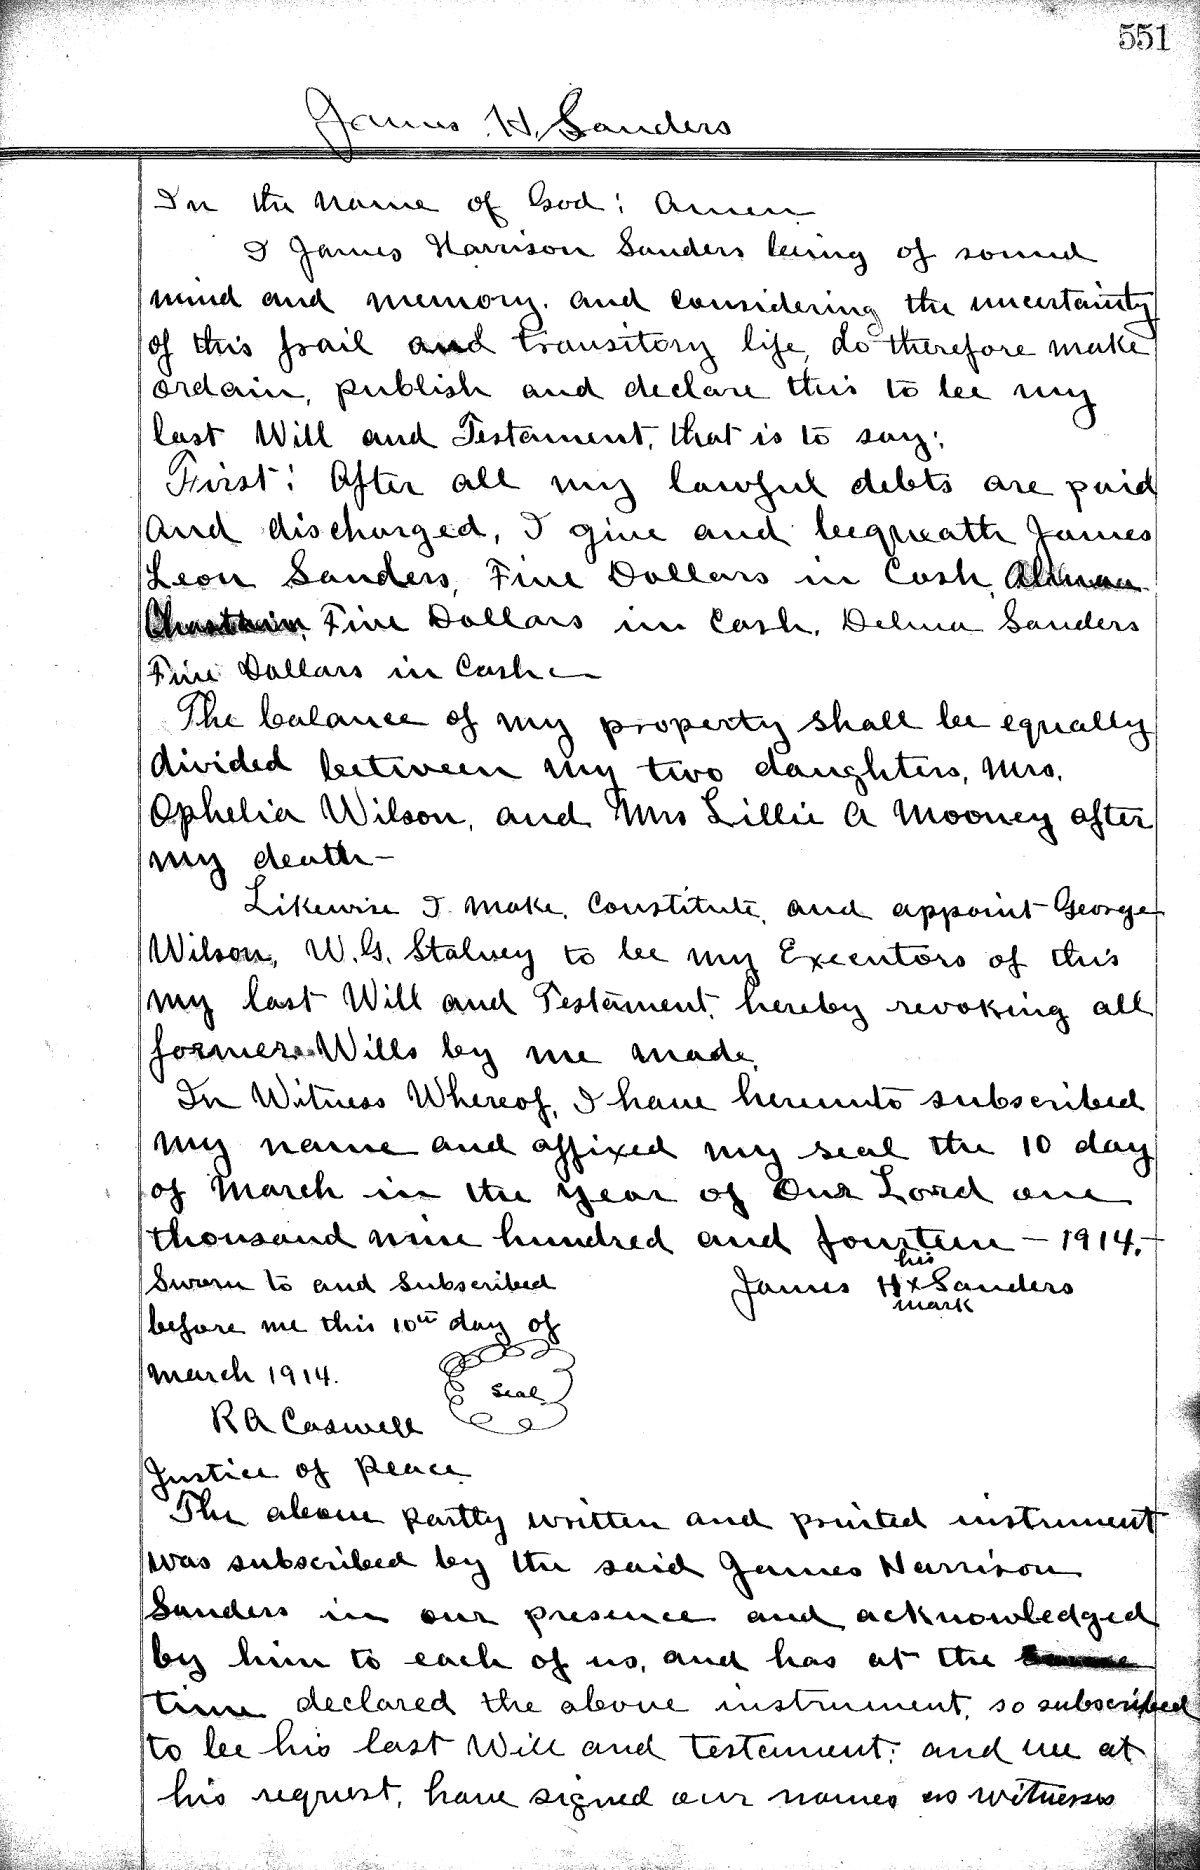 551
James H. Sanders
In the name of God: Amen
I James Harrison Sanders being of sound
mind and memory, and considering the uncertainty
of this frail and transitory life, do therefore make
ordain, publish and declare this to be my
last Will and Testament, that is to say:
First: After all my lawful debts are paid
and discharged, I give and bequeath James
Leon Sanders, Five Dollars in Cash,
Chastain, Five Dollars in Cash, Delma Sanders
Five Dollars in Cash—
The balance of my property shall be equally
divided between my two daughters, Mrs.
Ophelia Wilson, and Mrs Lillie A Mooney after
my death—
Likewise I make, Constitute, and appoint George
Wilson, W.G. Stalvey to be my Executors of this
my last Will and Testament, hereby revoking all
former Wills by me made.
In Witness Whereof, I have hereunto subscribed
my name and affixed my seal the 10 day
of March in the year of Our Lord one
thousand nine hundred and fourteen — 1914.—
his
James H x Sanders
mark
Sworn to and subscribed
before me this 10th day of
March 1914.
Seal
R A Caswell
Justice of Peace
The above partly written and printed instrument
was subscribed by the said James Harrison
Sanders in our presence and acknowledged
by him to each of us, and has at the same
time declared the above instrument, so subscribed
to be his last Will and testament: and we at
his request, have signed our names as witnesses